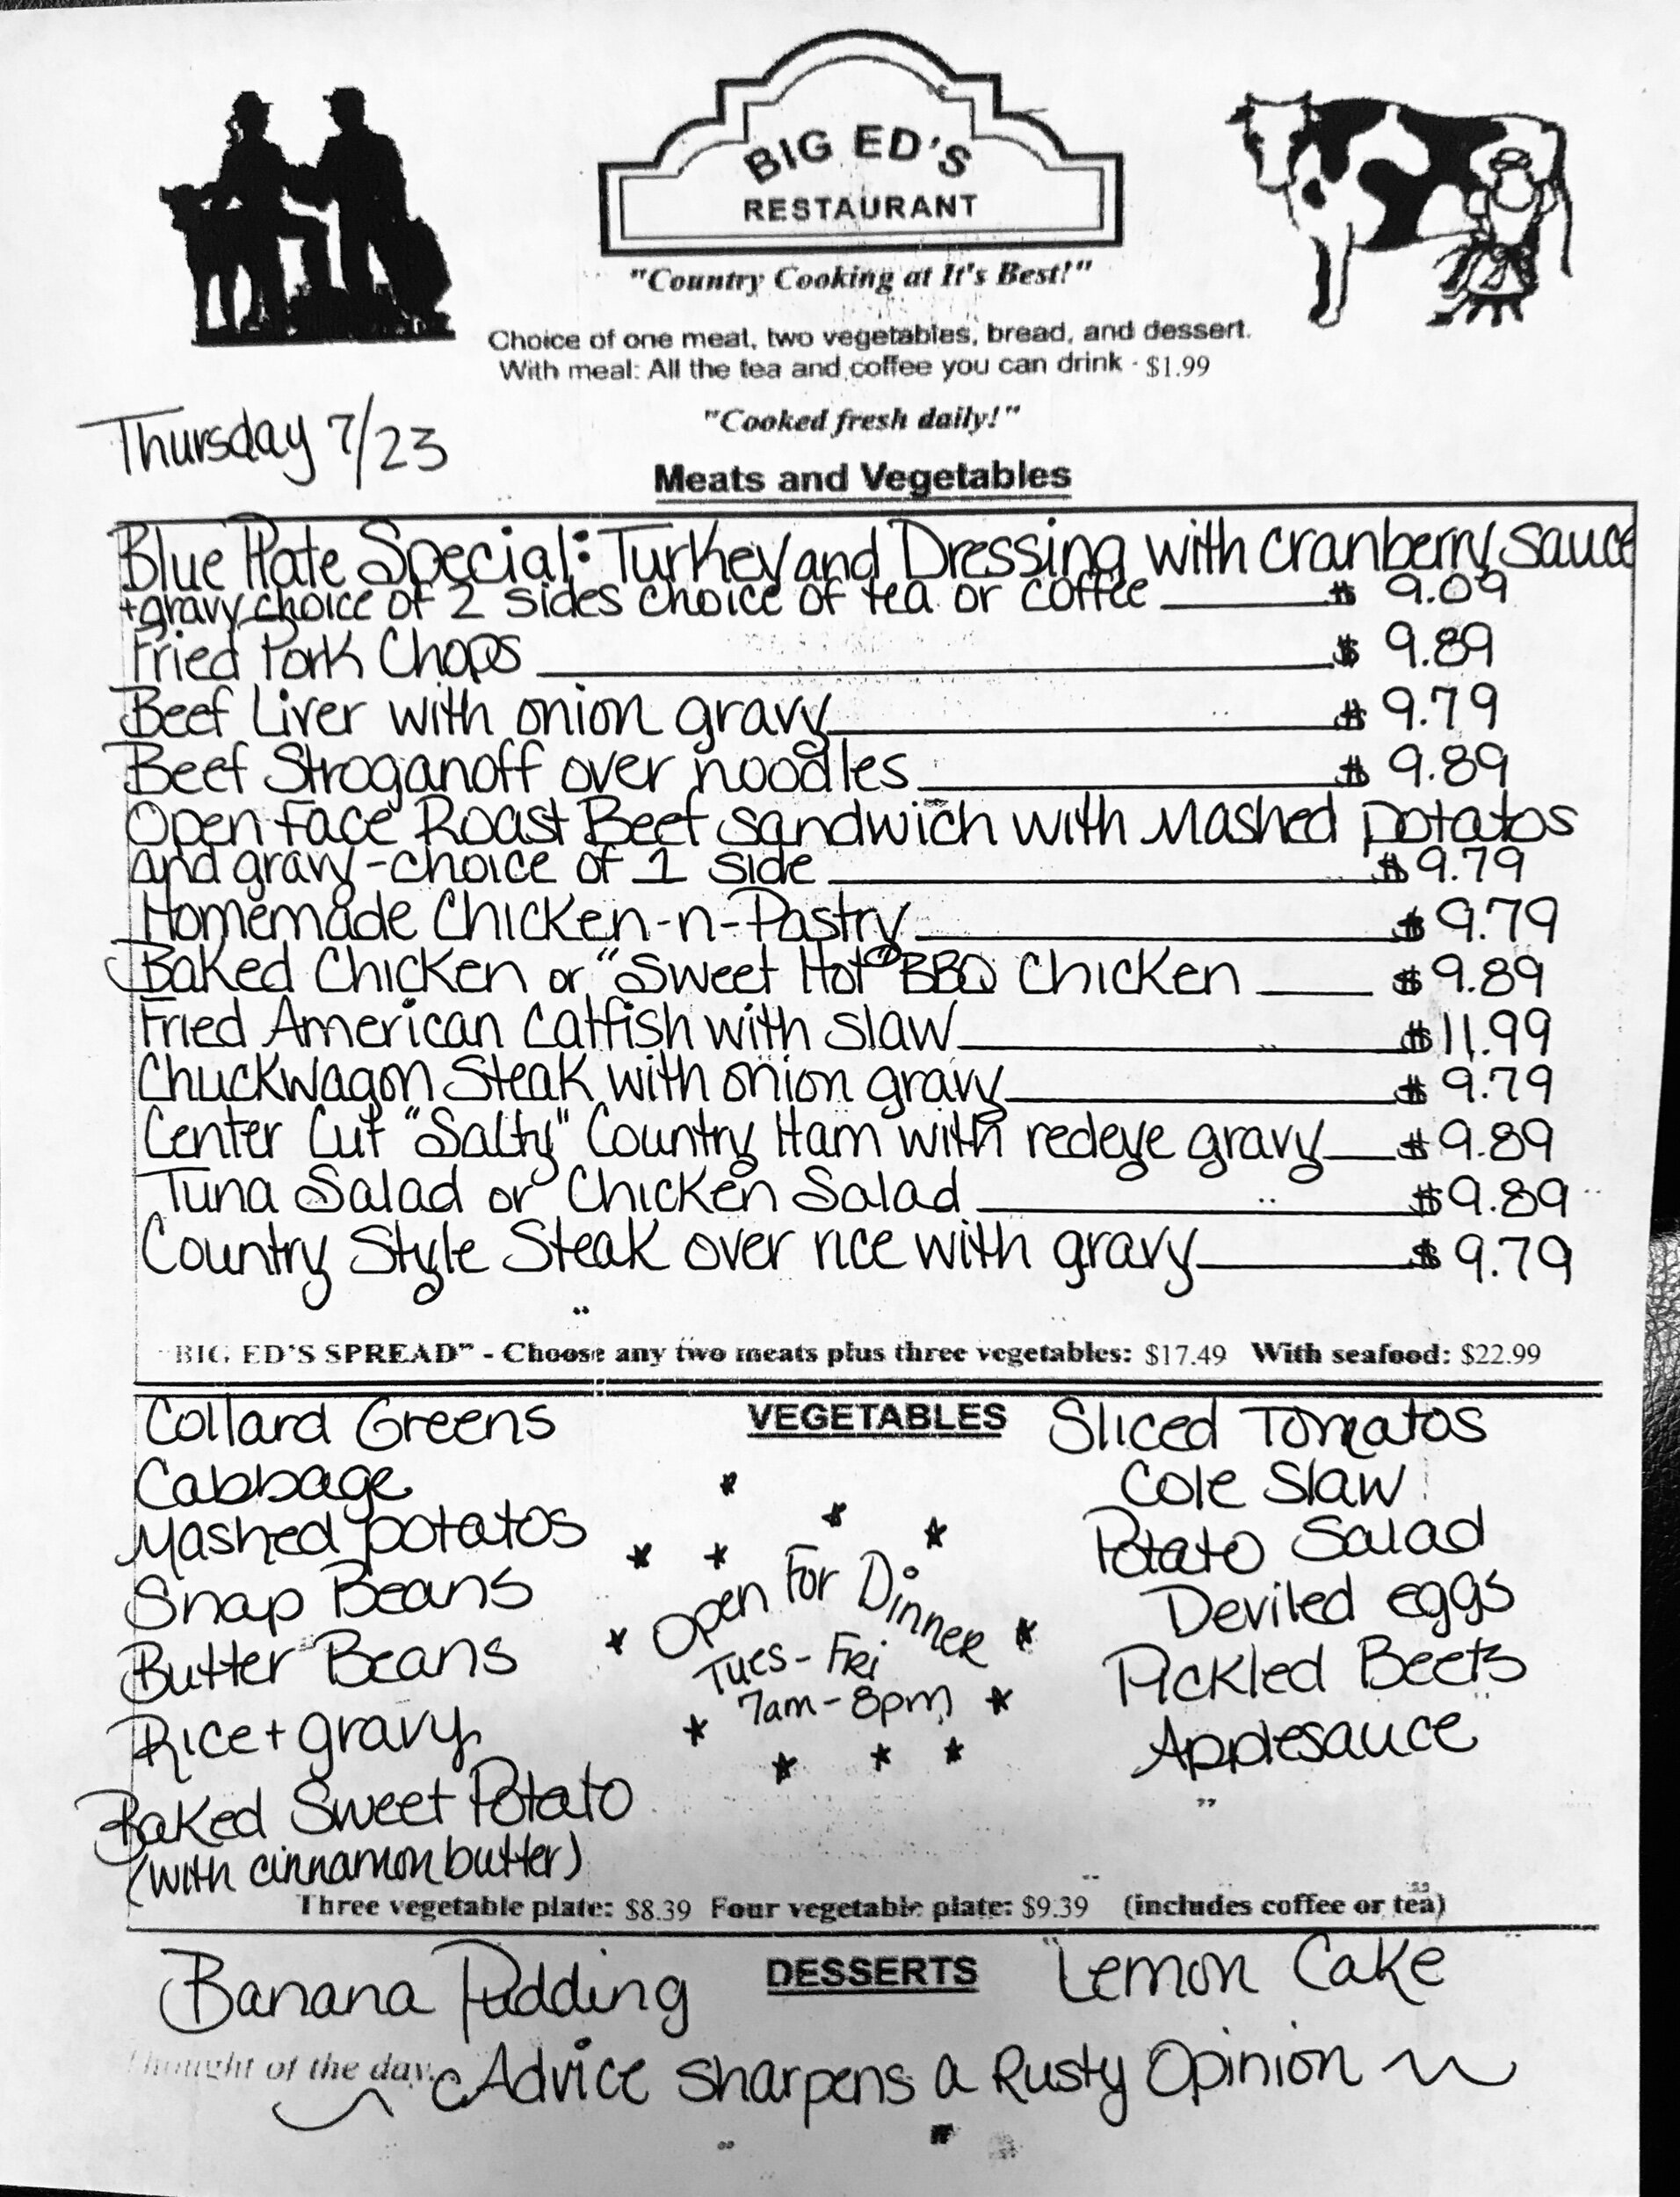 BIG ED'S
RESTAURANT
"Country Cooking at It's Best!"
Choice of one meat, two vegetables, bread, and dessert.
With meal: All the tea and coffee you can drink - $1.99
"Cooked fresh daily!"
Thursday 7/23
Meats and Vegetables
Blue Plate Special: Turkey and Dressing with cranberry sauce
+gravy choice of 2 sides choice of tea or coffee $ 9.09
Fried Pork Chops $ 9.89
Beef Liver with onion gravy $ 9.79
Beef Stroganoff over noodles $ 9.89
Open Face Roast Beef sandwich with Mashed potatos
and gravy-choice of 1 side $9.79
Homemade Chicken-n-Pastry $9.79
Baked Chicken or "Sweet Hot" BBQ Chicken $9.89
Fried American Catfish with slaw $11.99
Chuckwagon Steak with onion gravy $ 9.79
Center Cut "Salty" Country Ham with redeye gravy $9.89
Tuna Salad or Chicken Salad $9.89
Country Style Steak over rice with gravy $ 9.79
"BIG ED'S SPREAD" - Choose any two meats plus three vegetables: $17.49 With seafood: $22.99
VEGETABLES
Collard Greens
Cabbage
Mashed potatos
Snap Beans
Butter Beans
Rice + gravy
Baked Sweet Potato
(with cinnamon butter)
Open For Dinner
Tues - Fri
7am - 8pm
Sliced Tomatos
Cole Slaw
Potato Salad
Deviled eggs
Pickled Beets
Applesauce
Three vegetable plate: $8.39 Four vegetable plate: $9.39 (includes coffee or tea)
DESSERTS
Banana Pudding
Lemon Cake
Thought of the day. Advice sharpens a Rusty Opinion